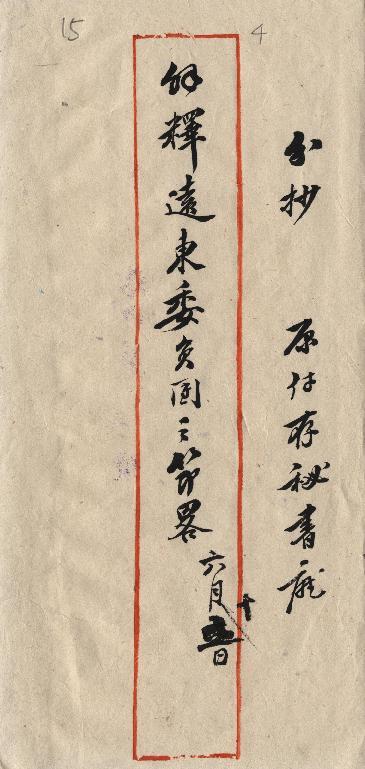 15
4
分抄 原件存秘書廳
解釋遠東委員團之節畧
六月十
日